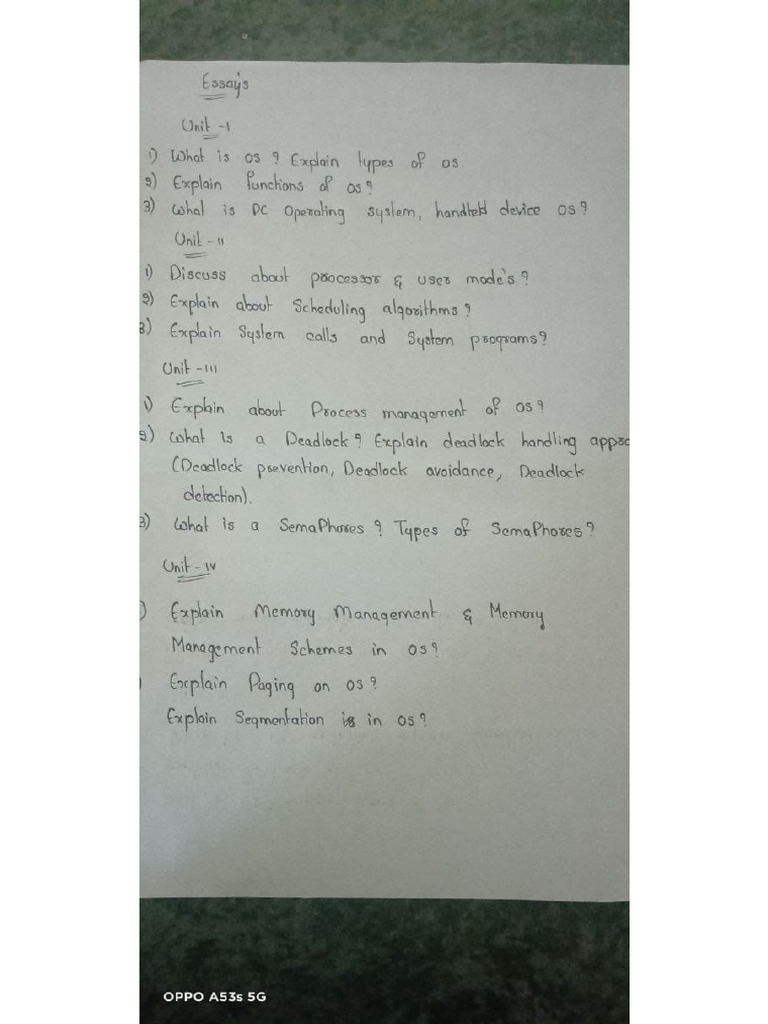 Essay's
Unit -I
1) What is OS ? Explain types of OS
2) Explain functions of OS?
3) What is PC Operating system, handheld device OS?
Unit - II
1) Discuss about processor & user mode's ?
2) Explain about Scheduling algorithms ?
3) Explain System calls and System programs?
Unit -III
1) Explain about Process management of OS?
2) What is a Deadlock? Explain deadlock handling approc
(Deadlock prevention, Deadlock avoidance, Deadlock
detection).
3) What is a SemaPhores ? Types of SemaPhores?
Unit - IV
) Explain Memory Management & Memory
Management Schemes in OS?
) Explain Paging on OS?
Explain Segmentation in OS?
OPPO A53s 5G